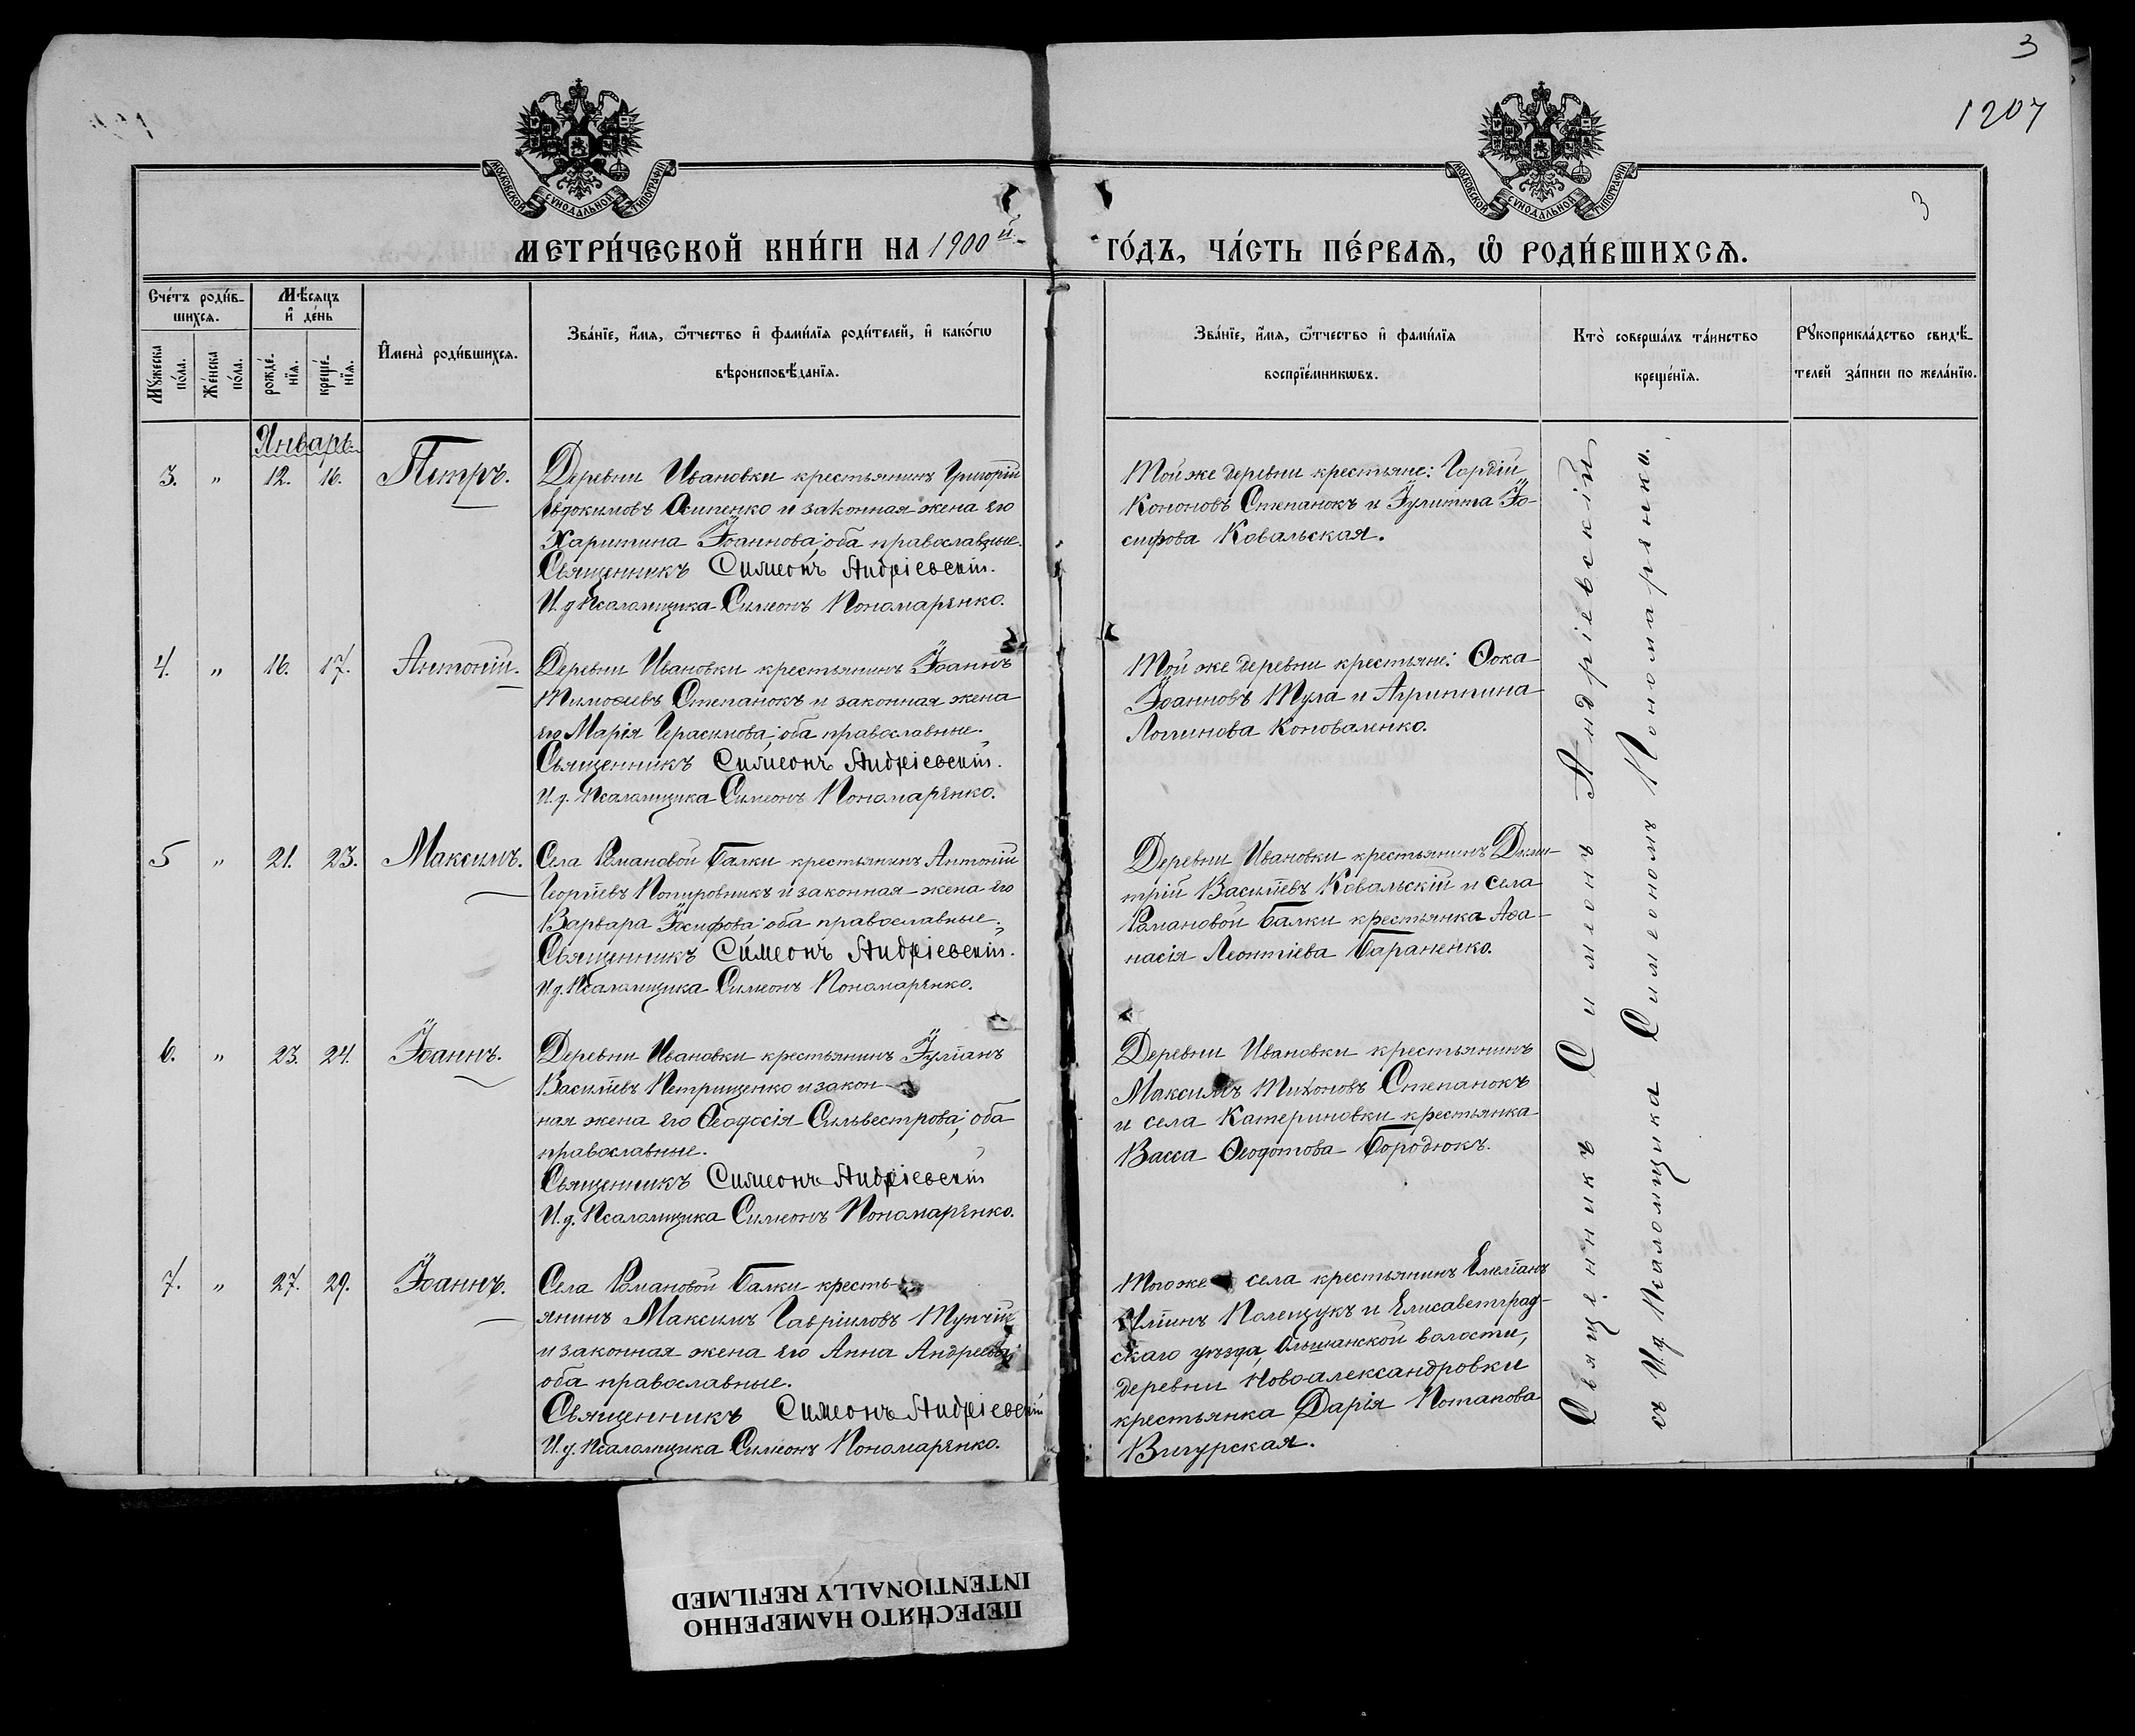 3
1207
3
МОСКОВСКОЙ СѴНОДАЛЬНОЙ ТИПОГРАФІИ
МОСКОВСКОЙ СѴНОДАЛЬНОЙ ТИПОГРАФІИ
МЕТРИ́ЧЕСКОЙ КНИ́ГИ НА 1900й
ГО́ДЪ, ЧА́СТЬ ПЕ́РВАѦ, Ѡ҆ РОДИ́ВШИХСѦ.
Счётъ роди́в-
шихсѧ.
Мѣ́сѧцъ
и҆ де́нь
Мꙋ́жеска
по́ла.
Же́нска
по́ла.
рожде́-
нїѧ.
креще́-
нїѧ.
И҆мена̀ роди́вшихсѧ.
Зва́нїе, и҆́мѧ, ѻ҆́тчество и҆ фами́лїѧ роди́телей, и҆ како́гѡ
вѣроисповѣ́данїѧ.
Зва́нїе, и҆́мѧ, ѻ҆́тчество и҆ фами́лїѧ
воспрїе́мникѡвъ.
Кто̀ соверша́лъ та́инство
креще́нїѧ.
Рꙋкоприкла́дство свидѣ́-
телей за́писи по жела́нїю.
Январь
3. " 12. 16. Петръ.
Деревни Ивановки крестьянинъ Григорій
Евдокимовъ Осипенко и законная жена его
Харитина Іоаннова; оба православные.
Священникъ Симеонъ Андріевскій.
И. д Псаломщика Симеонъ Пономаренко.
Той же деревни крестьяне: Гордій
Кононовъ Степанокъ и Іулитта Іо-
сифова Ковальская.
4. " 16. 17. Антоній.
Деревни Ивановки крестьянинъ Іоаннъ
Тимоѳеевъ Степанокъ и законная жена
его Марія Герасимова; оба православные.
Священникъ Симеонъ Андріевскій.
И. д. Псаломщика Симеонъ Пономаренко.
Той же деревни крестьяне: Ѳока
Іоанновъ Тула и Агриппина
Логинова Коноваленко.
5 " 21. 23. Максимъ.
Села Романовой Балки крестьянинъ Антоній
Георгіевъ Попировникъ и законная жена его
Варвара Іосифова; оба православные.
Священникъ Симеонъ Андріевскій.
И. д. Псаломщика Симеонъ Пономаренко.
Деревни Ивановки крестьянинъ Дими-
трій Василіевъ Ковальскій и села
Романовой Балки крестьянка Аѳа-
насія Леонтіева Бараненко.
6. " 23. 24. Іоаннъ.
Деревни Ивановки крестьянинъ Іуліанъ
Василіевъ Петрищенко и закон-
ная жена его Ѳеодосія Сильвестрова; оба
православные.
Священникъ Симеонъ Андріевскій
И. д. Псаломщика Симеонъ Пономаренко.
Деревни Ивановки крестьянинъ
Максимъ Тихоновъ Степанокъ
и села Катериновки крестьянка
Васса Ѳеодотова Бородюкъ.
7. " 27. 29. Іоаннъ.
Села Романовой Балки кресть-
янинъ Максимъ Гавріиловъ Тупчій
и законная жена его Анна Андреева;
оба православные.
Священникъ Симеонъ Андріевскій
И. д. Псаломщика Симеонъ Пономаренко.
Того же села крестьянинъ Емеліанъ
Иліинъ Полещукъ и Елисаветград-
скаго уѣзда, Ольшанской волости,
деревни Новоалександровки
крестьянка Дарія Потапова
Вигурская.
Священникъ Симеонъ Андріевскій
съ И.д. Псаломщика Симеономъ Пономаренко.
ПЕРЕСНЯТО НАМЕРЕННО
INTENTIONALLY REFILMED